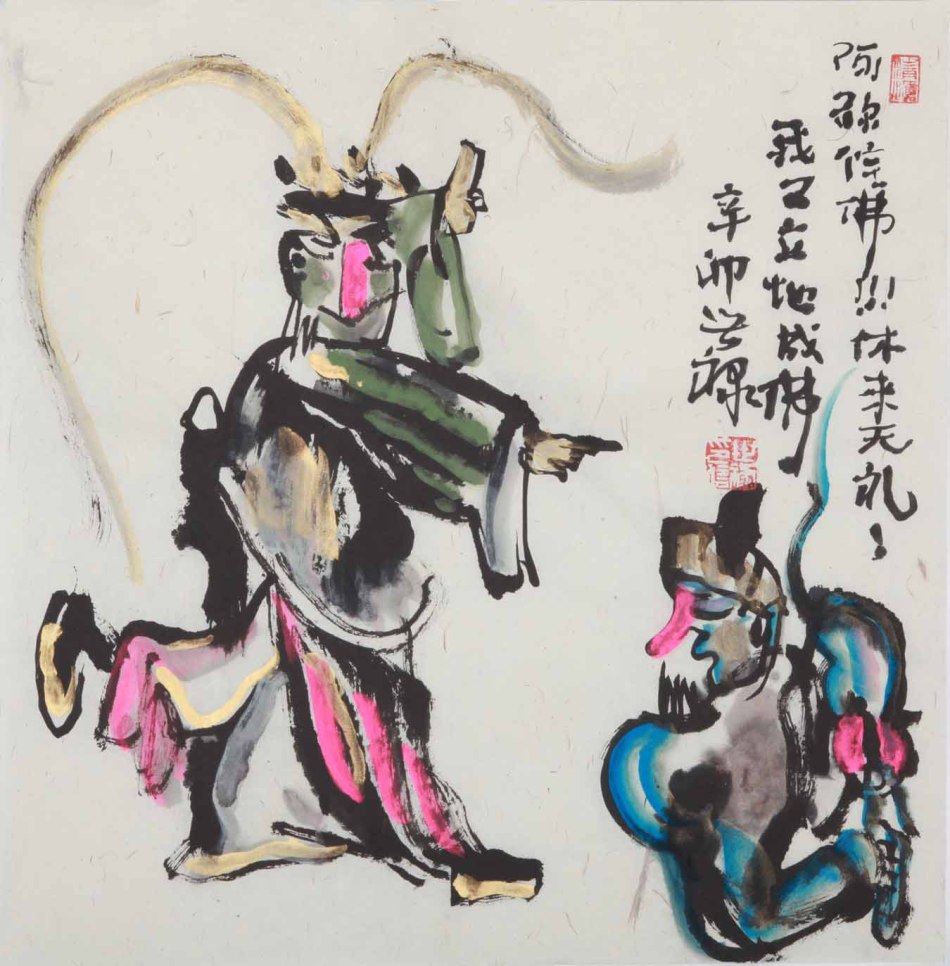 阿弥陀佛!!!休来无礼、
我已立地成佛
辛卯世禄